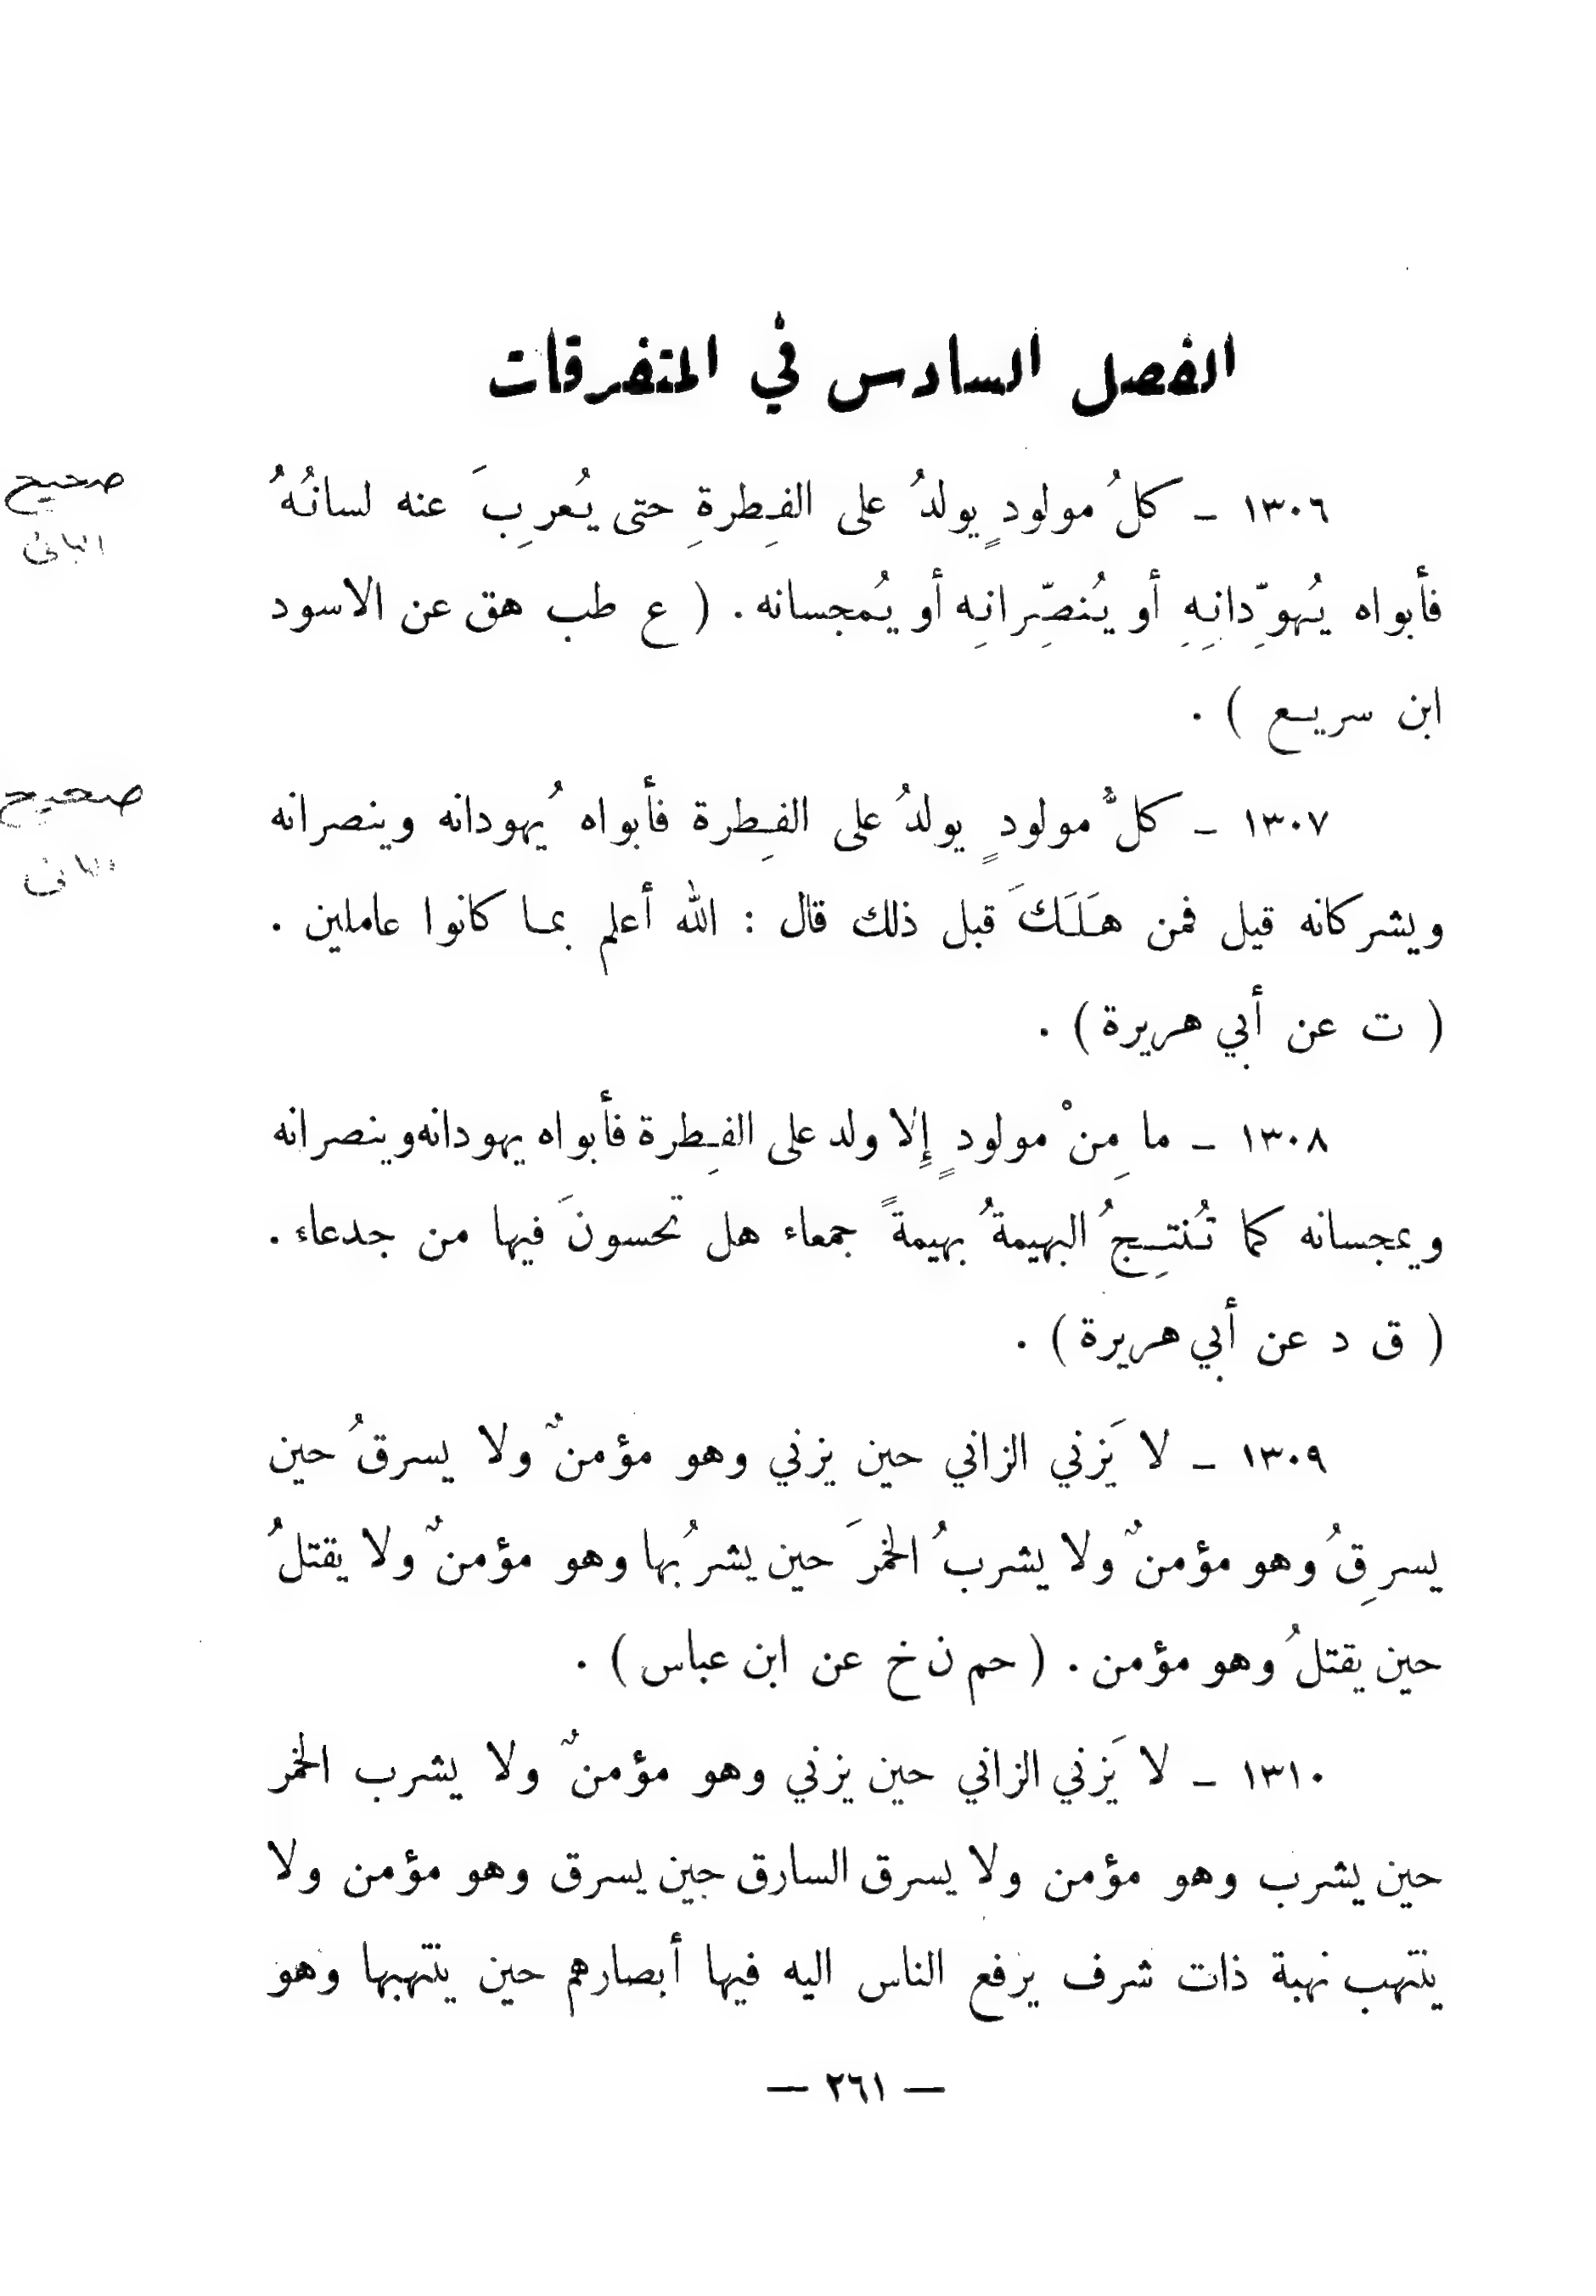 الفصل السادس في المتفرقات
١٣٠٦ – كلُ مولودٍ يولدُ على الفِطرةِ حتى يُعرِبَ عنه لسانُهُ
صحيح
البانى
فأبواه يُهوِّدانِهِ أو يُنصِّرانِه أو يُمجسانه . ( ع طب هق عن الاسود
ابن سريع ) .
١٣٠٧ – كلُّ مولودٍ يولدُ على الفِطرة فأبواه يُهودانه وينصرانه
صحيح
البانى
ويشركانه قيل فمن هَلَكَ قبل ذلك قال : الله أعلم بما كانوا عاملين .
( ت عن أبي هريرة ) .
١٣٠٨ – ما مِنْ مولودٍ إِلا ولد على الفِطرة فأبواه يهودانه وينصرانه
ويمجسانه كما تُنتِجُ البهيمةُ بهيمةً جمعاء هل تحسونَ فيها من جدعاء .
( ق د عن أبي هريرة ) .
١٣٠٩ – لا يَزني الزاني حين يزني وهو مؤمنٌ ولا يسرقُ حين
يسرِقُ وهو مؤمنٌ ولا يشربُ الخمرَ حين يشربُها وهو مؤمنٌ ولا يقتلُ
حين يقتلُ وهو مؤمن . ( حم ن خ عن ابن عباس ) .
١٣١٠ – لا يَزني الزاني حين يزني وهو مؤمنٌ ولا يشرب الخمر
حين يشرب وهو مؤمن ولا يسرق السارق حين يسرق وهو مؤمن ولا
ينتهب نهبة ذات شرف يرفع الناس اليه فيها أبصارهم حين ينتهبها وهو
— ٢٦١ —